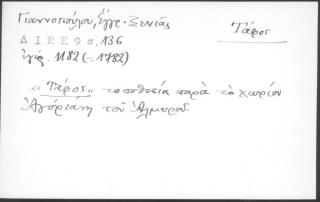 Γιαννοπούλου, ἔγγρ. Ξενιᾶς
Τάφος
Δ Ι Ε Ε 9 σ. 136
ἐγίρ. 1182 (= 1782)
«Τάφος» τοποθεσία παρὰ τὸ χωρίον
Ἀγόριάνη τοῦ Ἁλμυροῦ.